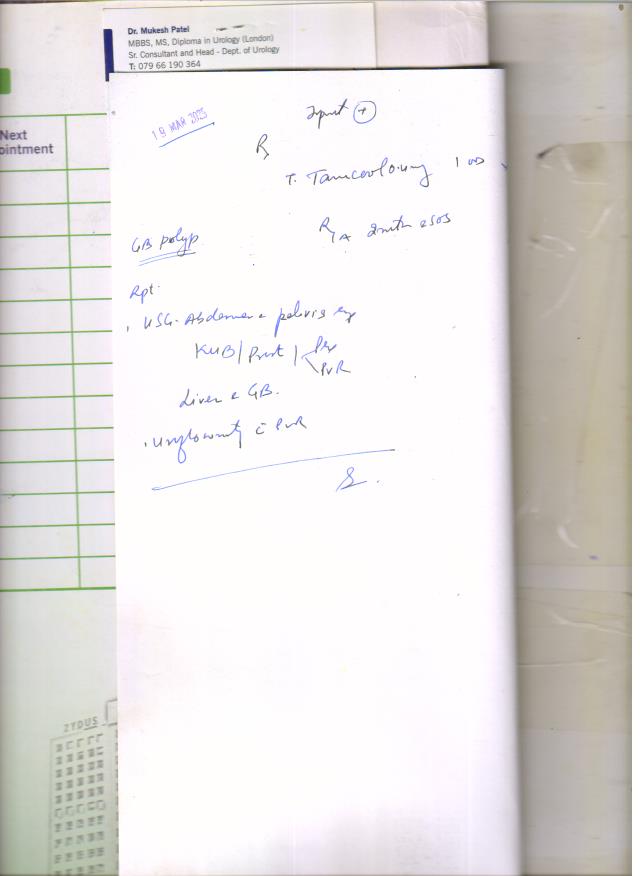 Dr. Mukesh Patel
MBBS, MS, Diploma in Urology (London)
Sr. Consultant and Head - Dept. of Urology
T: 079 66 190 364
Next
ointment
19 MAR 2025
+
R
T. 1 OD
GB polyp
R/A 2mth SOS
Rpt.
USG. Abdomen & pelvis
KUB/Prost/Pre
PVR
Liver & GB.
Uroflowmetry c̄ PVR
ZYDUS